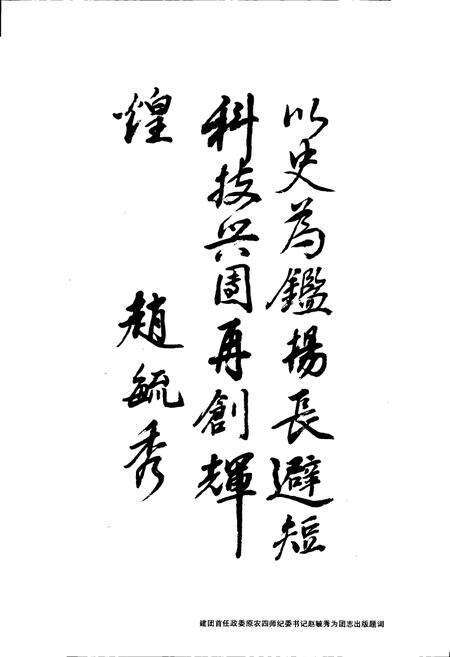 以史為鑑揚長避短
科技兴團再創輝
煌
趙毓秀
建团首任政委原农四师纪委书记赵毓秀为团志出版题词